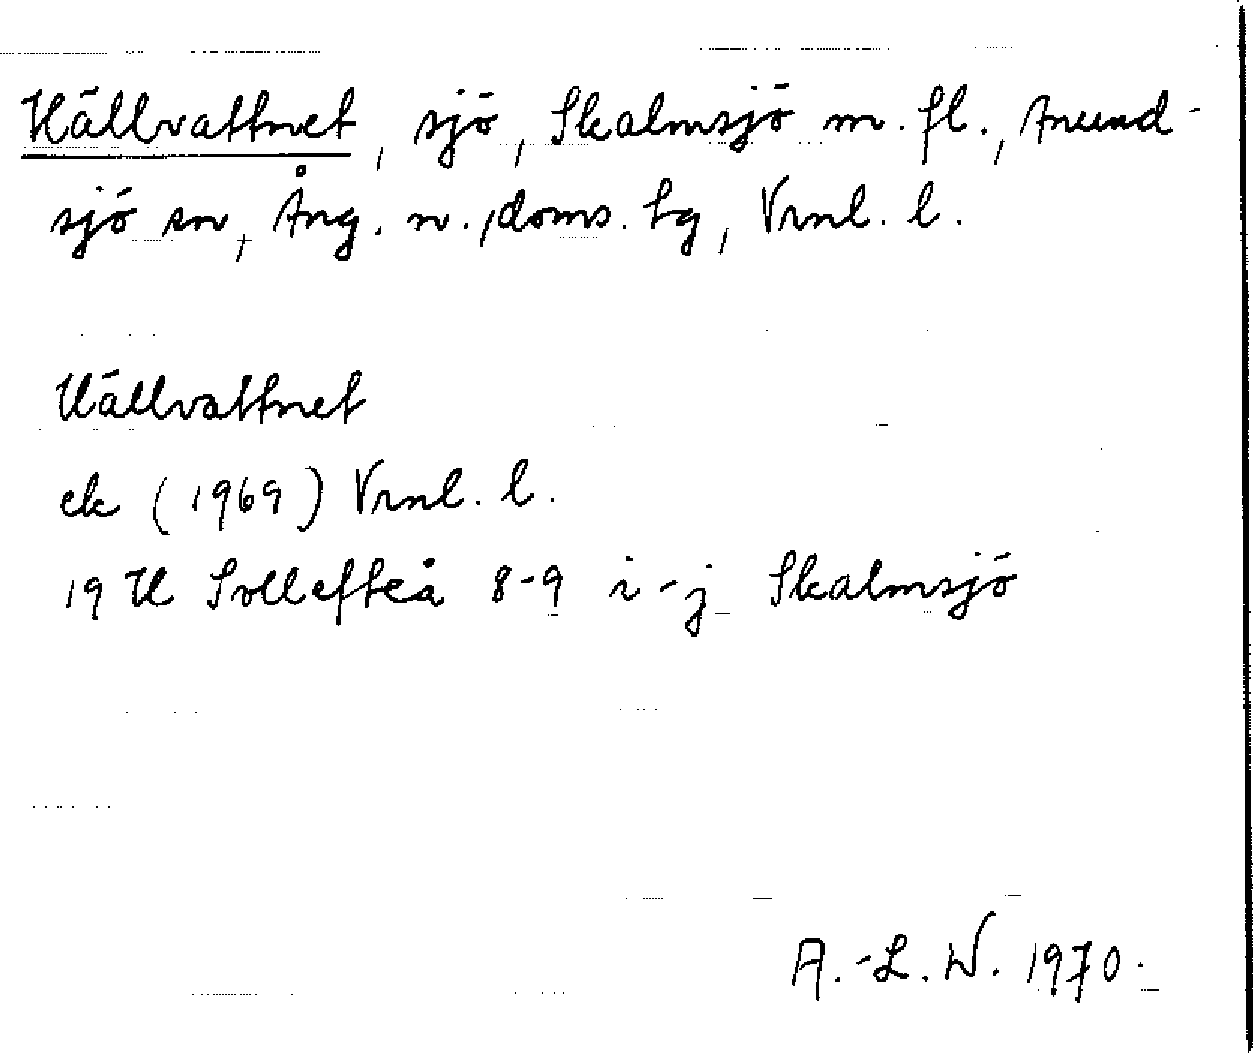 Hällvattnet, sjö, Skalmsjö m. fl., Anund-
sjö sn, Ång. n. doms. tg, Vrnl. l.
Hällvattnet
ek (1969) Vrnl. l.
19 H Sollefteå 8-9 i-j Skalmsjö
A.-L. W. 1970.